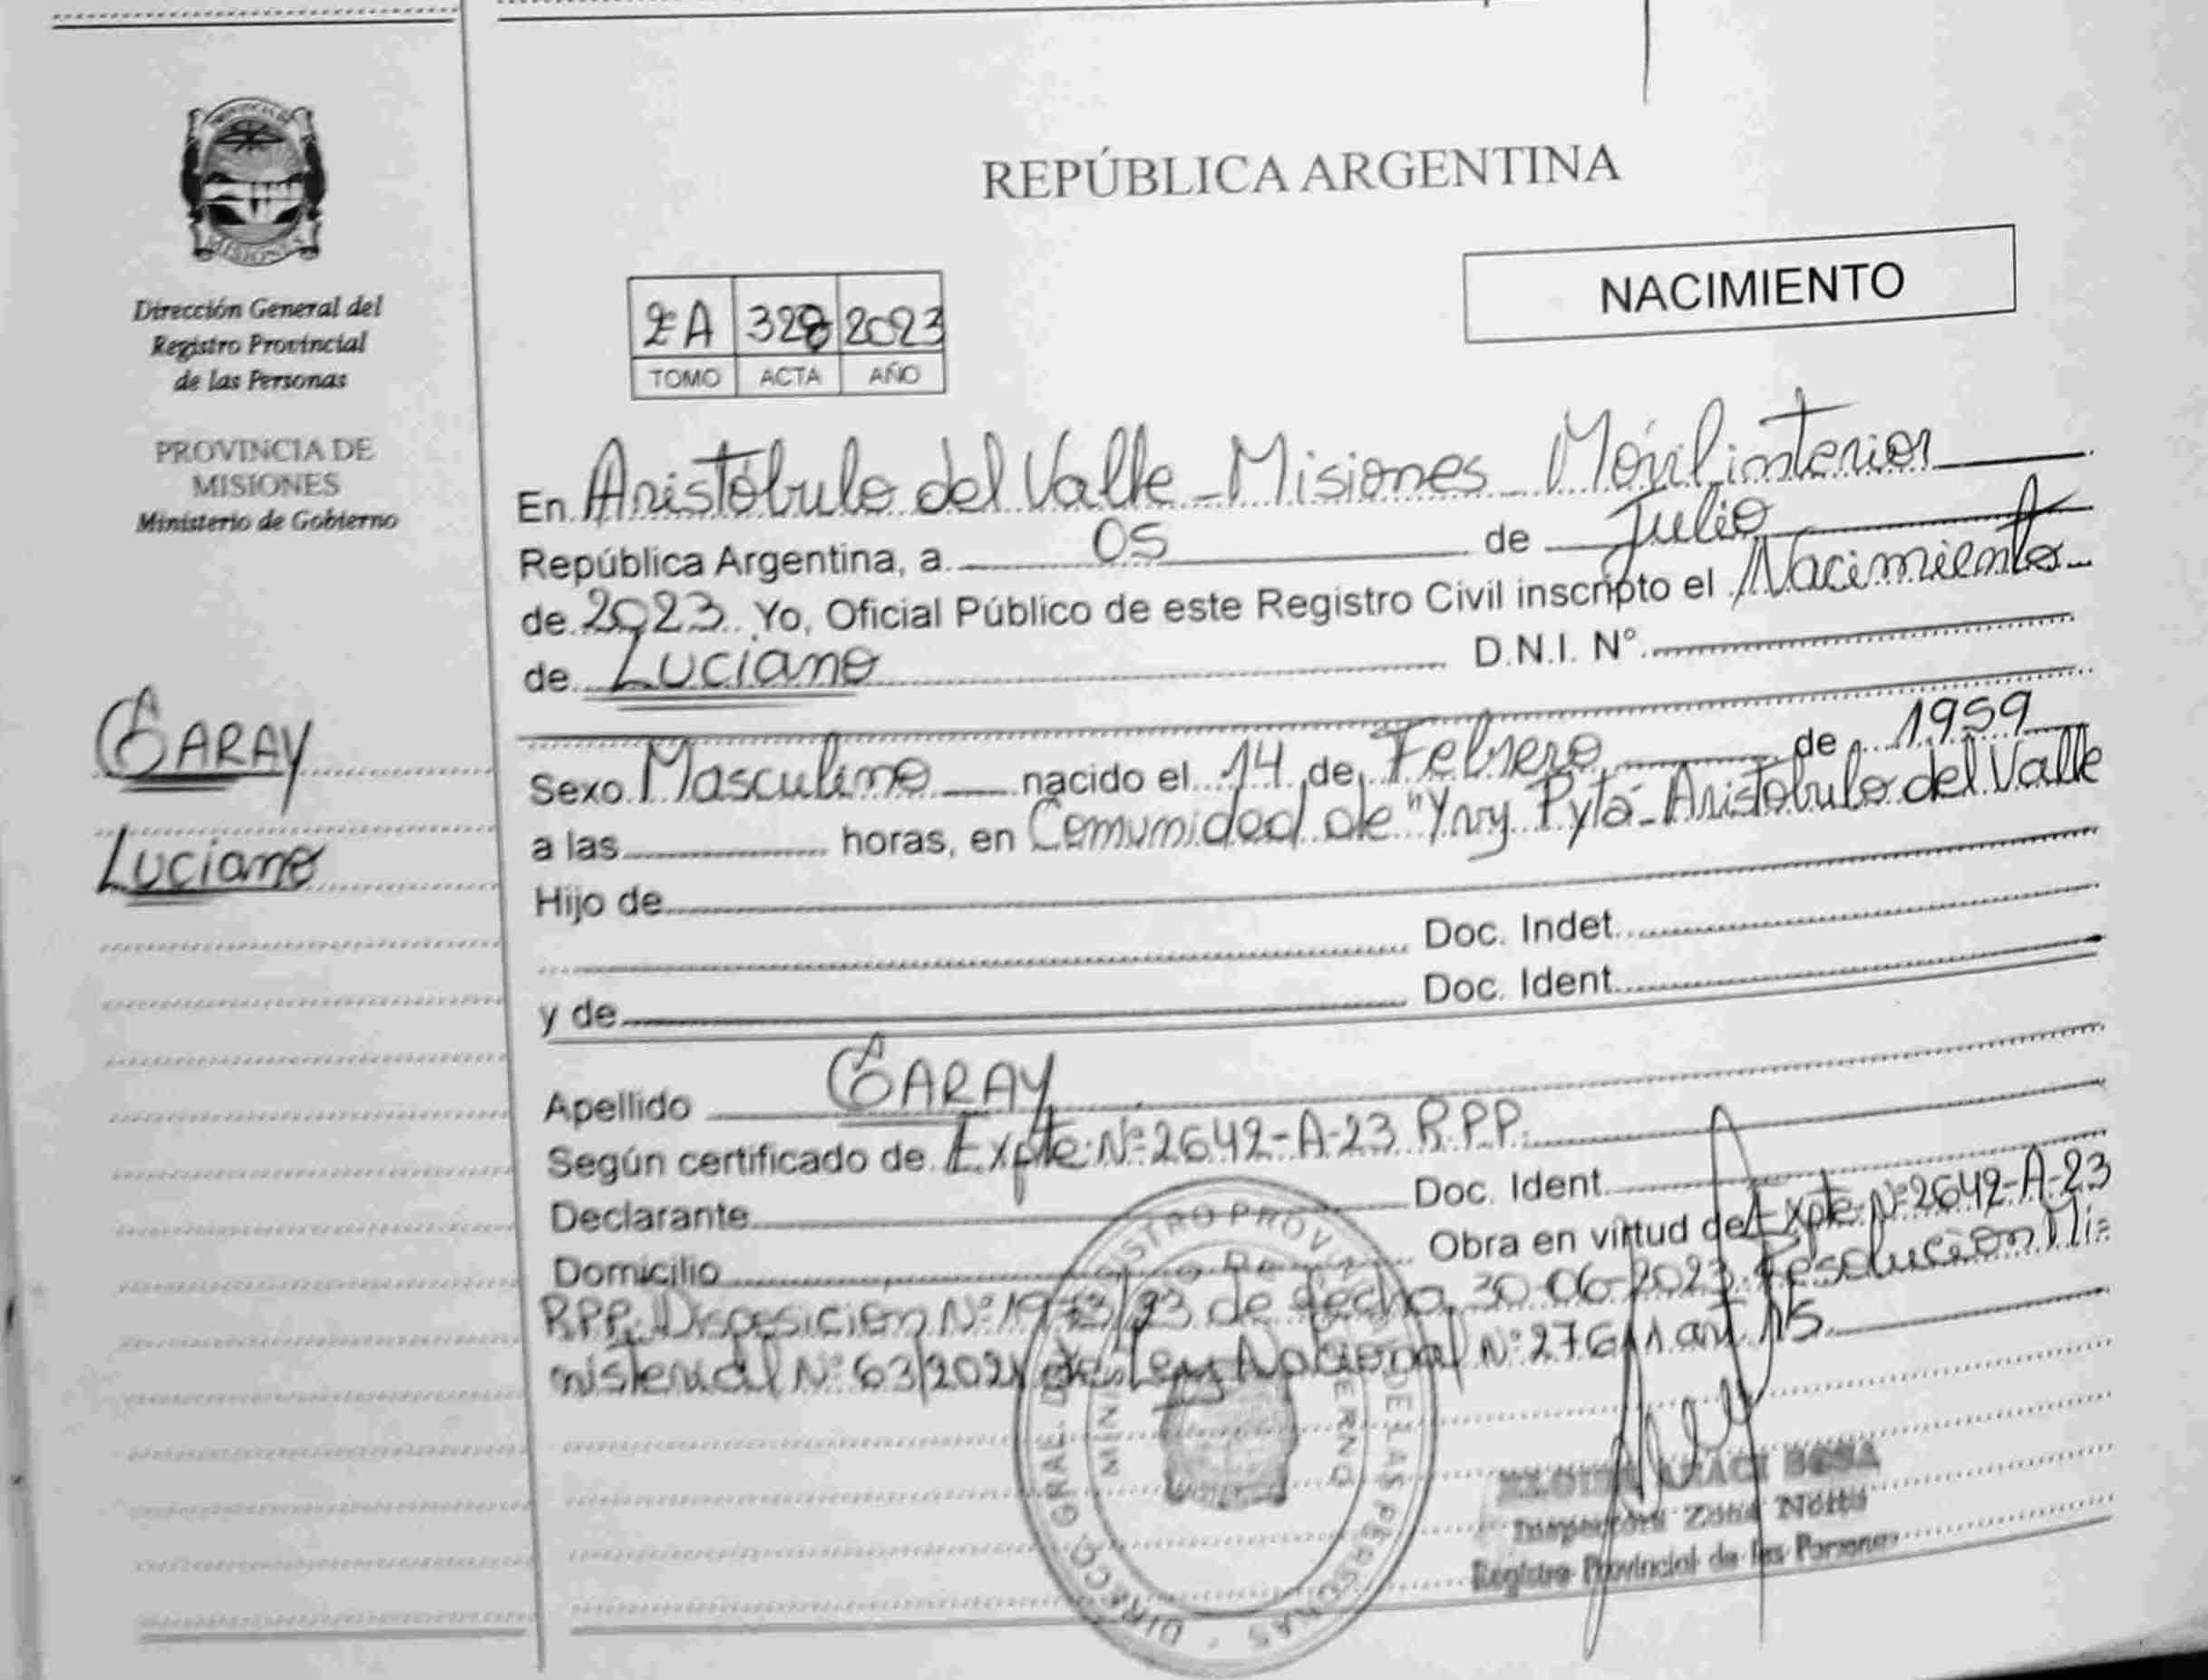 Dirección General del
Registro Provincial
de las Personas
PROVINCIA DE
MISIONES
Ministerio de Gobierno
GARAY
Luciano
REPÚBLICA ARGENTINA
NACIMIENTO
2ºA 328 2023
TOMO ACTA AÑO
En Aristóbulo del Valle - Misiones - Móvil interior
República Argentina, a 05 de Julio
de 2023 Yo, Oficial Público de este Registro Civil inscripto el Nacimiento
de Luciano D.N.I. Nº
Sexo Masculino nacido el 14 de Febrero de 1959
a las horas, en Comunidad de "Yvy Pytá - Aristóbulo del Valle
Hijo de
Doc. Indet.
y de Doc. Ident.
Apellido GARAY
Según certificado de Expte. Nº 2642-A-23 R.P.P.
Declarante Doc. Ident.
Domicilio Obra en virtud de Expte. Nº 2642-A-23
RPP. Disposición Nº 1973/23 de fecha 30-06-2023. Resolución Mi=
nisterial Nº 63/2021 de Ley Nacional Nº 27611 art. 15.
DIRECC. GRAL. DEL REGISTRO PROV. DE LAS PERSONAS
ARACI SOSA
Inspectora Zona Norte
Registro Provincial de las Personas